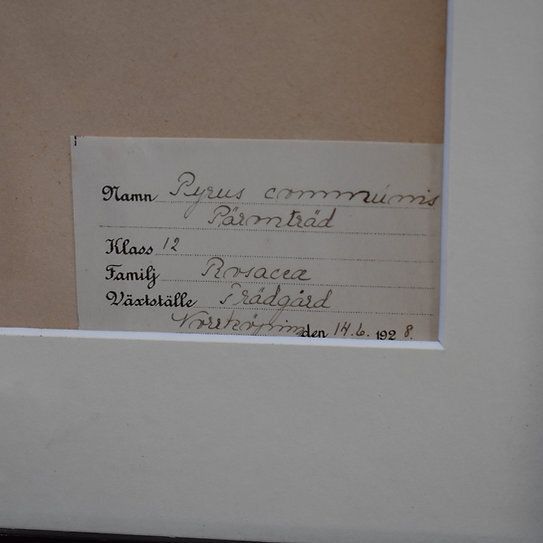 Namn Pyrus communis
Päronträd
Klass 12
Familj Rosaceæ
Växtställe Trädgård
Norrköping den 14.6. 1928.